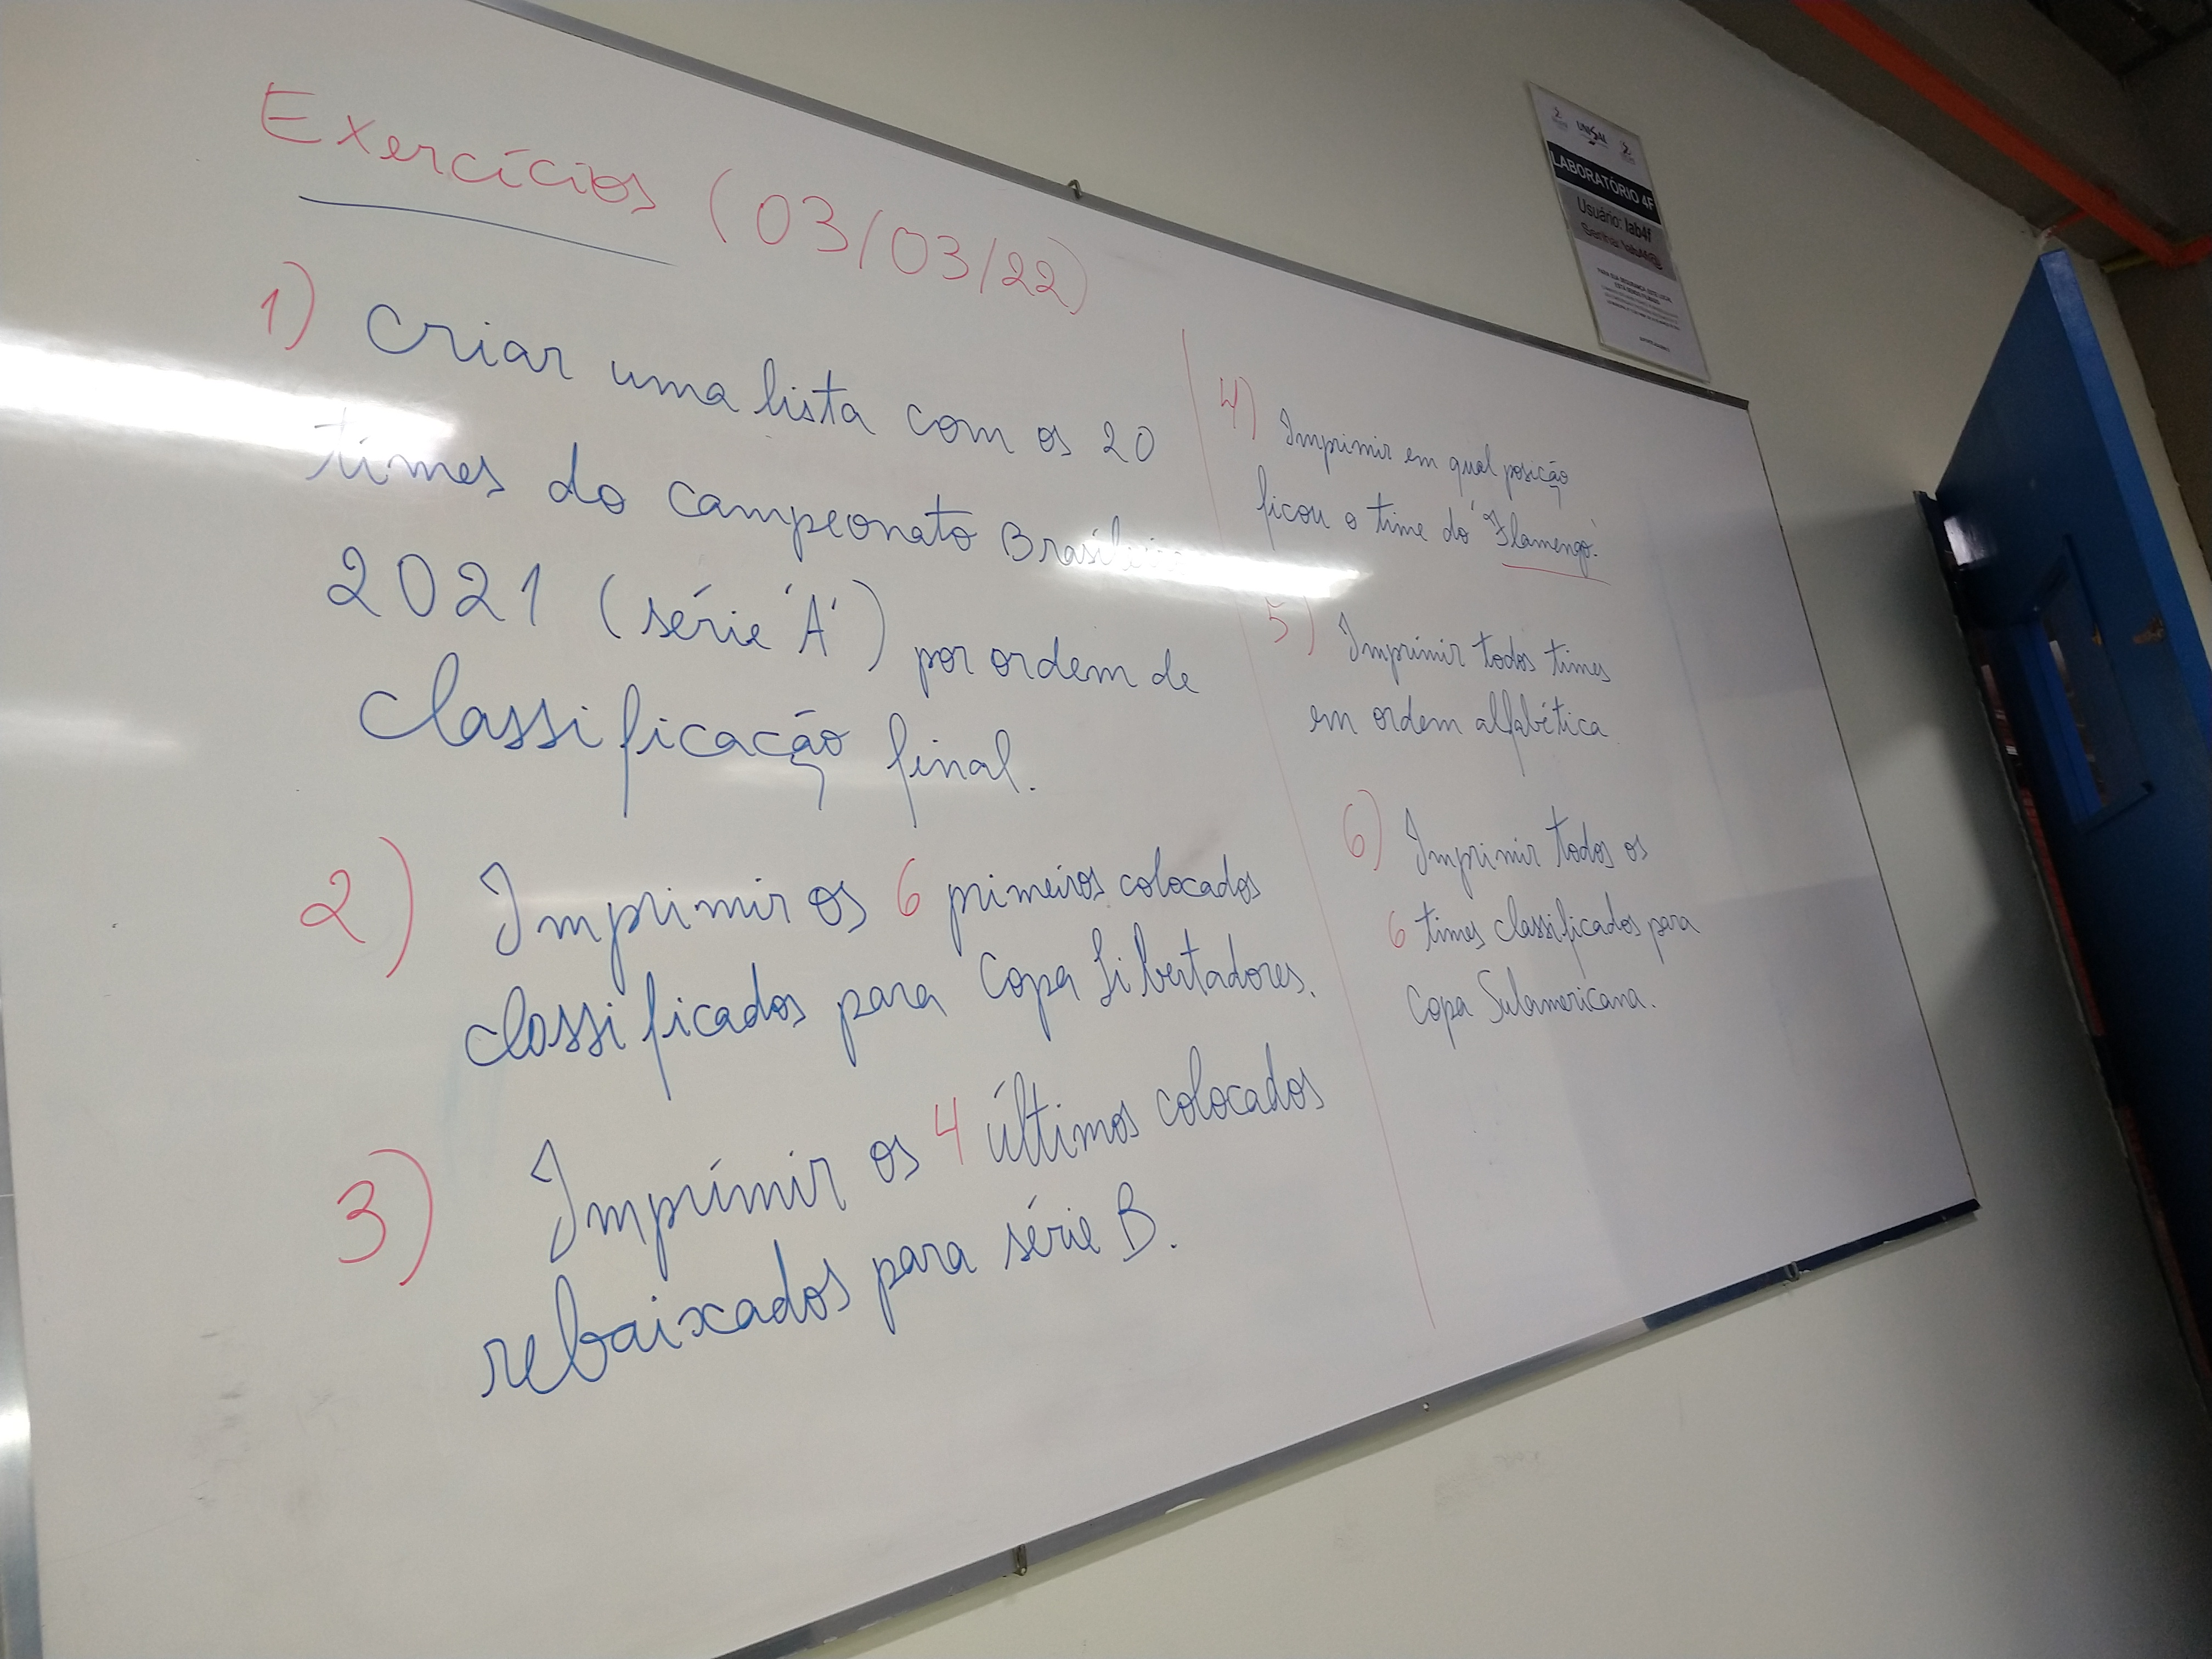 Exercícios (03/03/22)
1) Criar uma lista com os 20
times do campeonato Brasileiro
2021 (série 'A') por ordem de
classificação final.
2) Imprimir os 6 primeiros colocados
classificados para Copa Libertadores.
3) Imprimir os 4 últimos colocados
rebaixados para série B.
4) Imprimir em qual posição
ficou o time do "Flamengo".
5) Imprimir todos times
em ordem alfabética
6) Imprimir todos os
6 times classificados para
Copa Sulamericana.
UNISAL
LABORATÓRIO 4F
Usuário: lab4f
Senha: